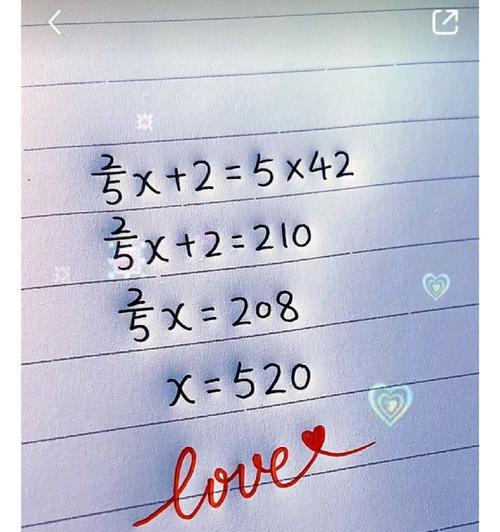 2/5 x + 2 = 5 × 42
2/5 x + 2 = 210
2/5 x = 208
x = 520
love